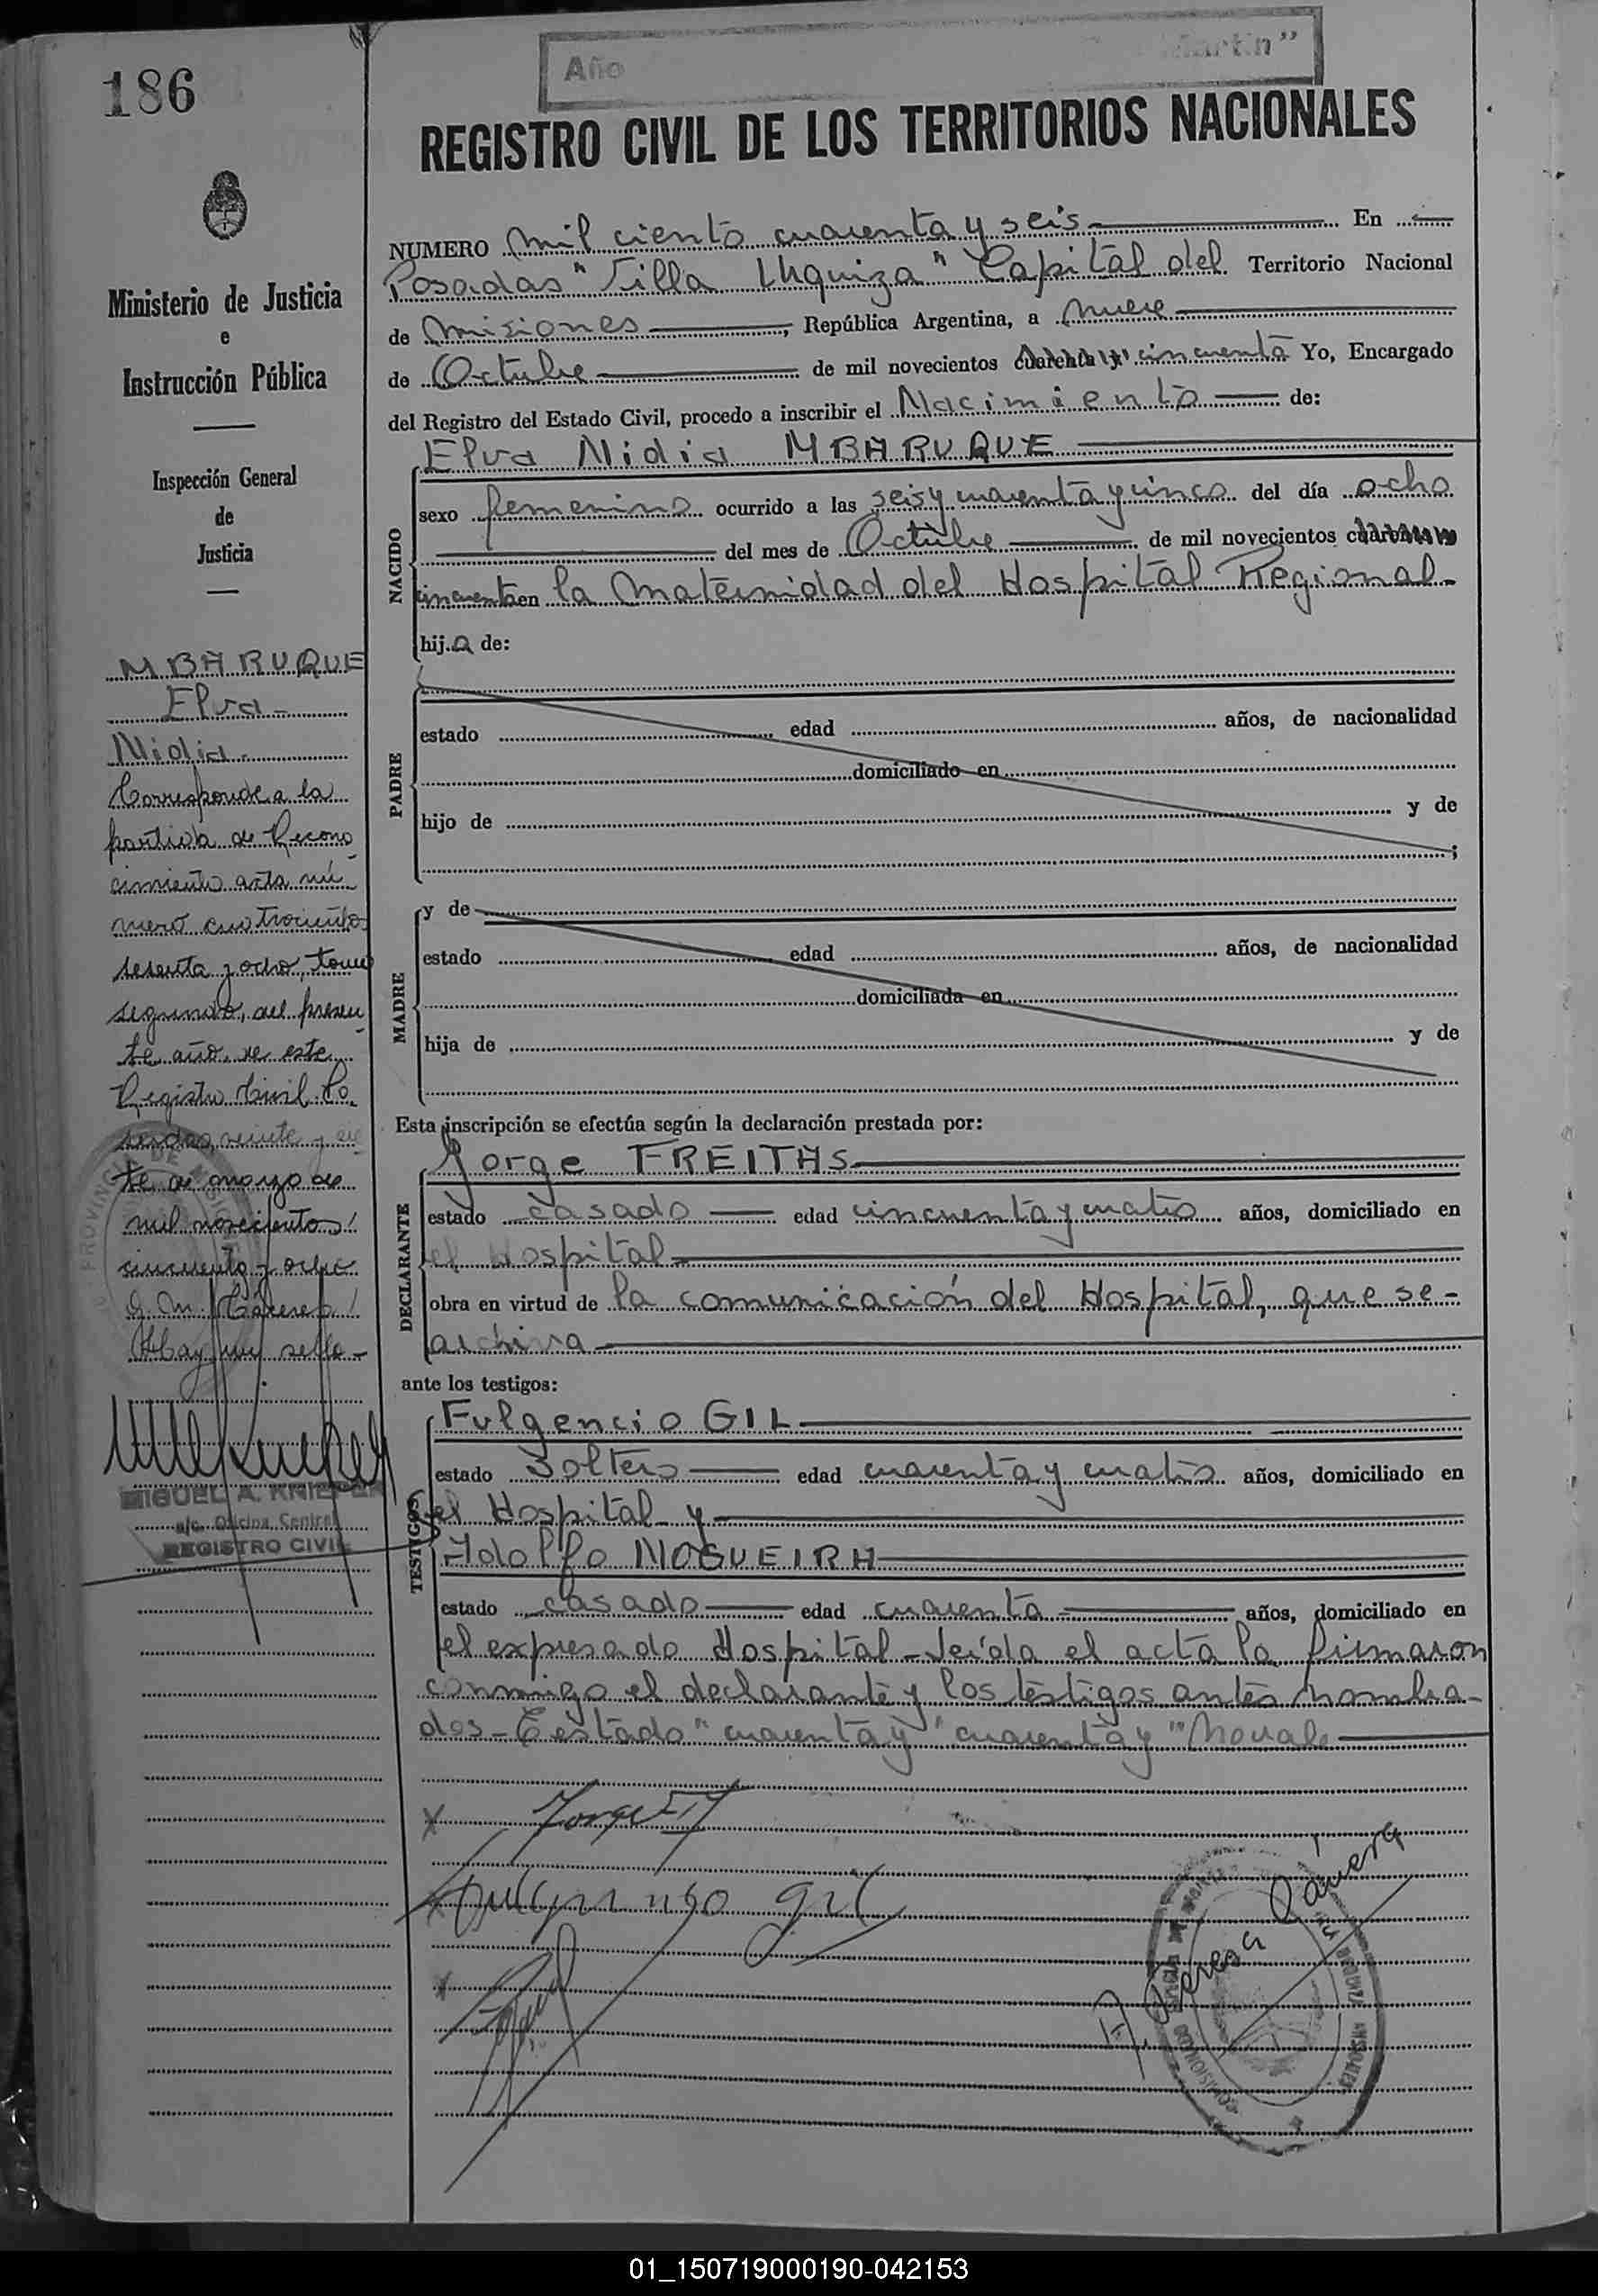 186
Año Martín”
REGISTRO CIVIL DE LOS TERRITORIOS NACIONALES
NUMERO mil ciento cuarenta y seis En
Posadas "Villa Urquiza" Capital del Territorio Nacional
de Misiones, República Argentina, a nueve
de Octubre de mil novecientos cuarenta y cincuenta Yo, Encargado
del Registro del Estado Civil, procedo a inscribir el Nacimiento de:
Ministerio de Justicia
e
Instrucción Pública
Inspección General
de
Justicia
NACIDO
Elva Nidia MBARUQUE
sexo femenino ocurrido a las seis y cuarenta y cinco del día ocho
del mes de Octubre de mil novecientos cuarenta
cincuenta en la Maternidad del Hospital Regional-
hija de:
PADRE
estado edad años, de nacionalidad
domiciliado en
hijo de y de
;
MADRE
y de
estado edad años, de nacionalidad
domiciliada en
hija de y de
Esta inscripción se efectúa según la declaración prestada por:
DECLARANTE
Jorge FREITAS
estado casado edad cincuenta y cuatro años, domiciliado en
el Hospital
obra en virtud de la comunicación del Hospital, que se-
archiva
ante los testigos:
TESTIGOS
Fulgencio GIL
estado Soltero edad cuarenta y cuatro años, domiciliado en
el Hospital y
Adolfo NOGUEIRA
estado casado edad cuarenta años, domiciliado en
el expresado Hospital - Leída el acta la firmaron
conmigo el declarante y los testigos antes nombra-
dos - Testado "cuarenta y" "cuarenta y" No vale
MBARUQUE
Elva-
Nidia.
Corresponde a la
partida de Recono
cimiento acta nú
mero cuatrocientos
sesenta y ocho, tomo
segundo, del presen
te año, de este
Registro Civil. Po
sadas, veinte y sie
te de mayo de
mil novecientos
cincuenta y ocho
Hay un sello-
PROVINCIA DE MISIONES
MIGUEL A. KNIEPER
a/c. Oficina Central
REGISTRO CIVIL
Jorge
Fulgencio gil
Teresa Ramirez
01_150719000190-042153